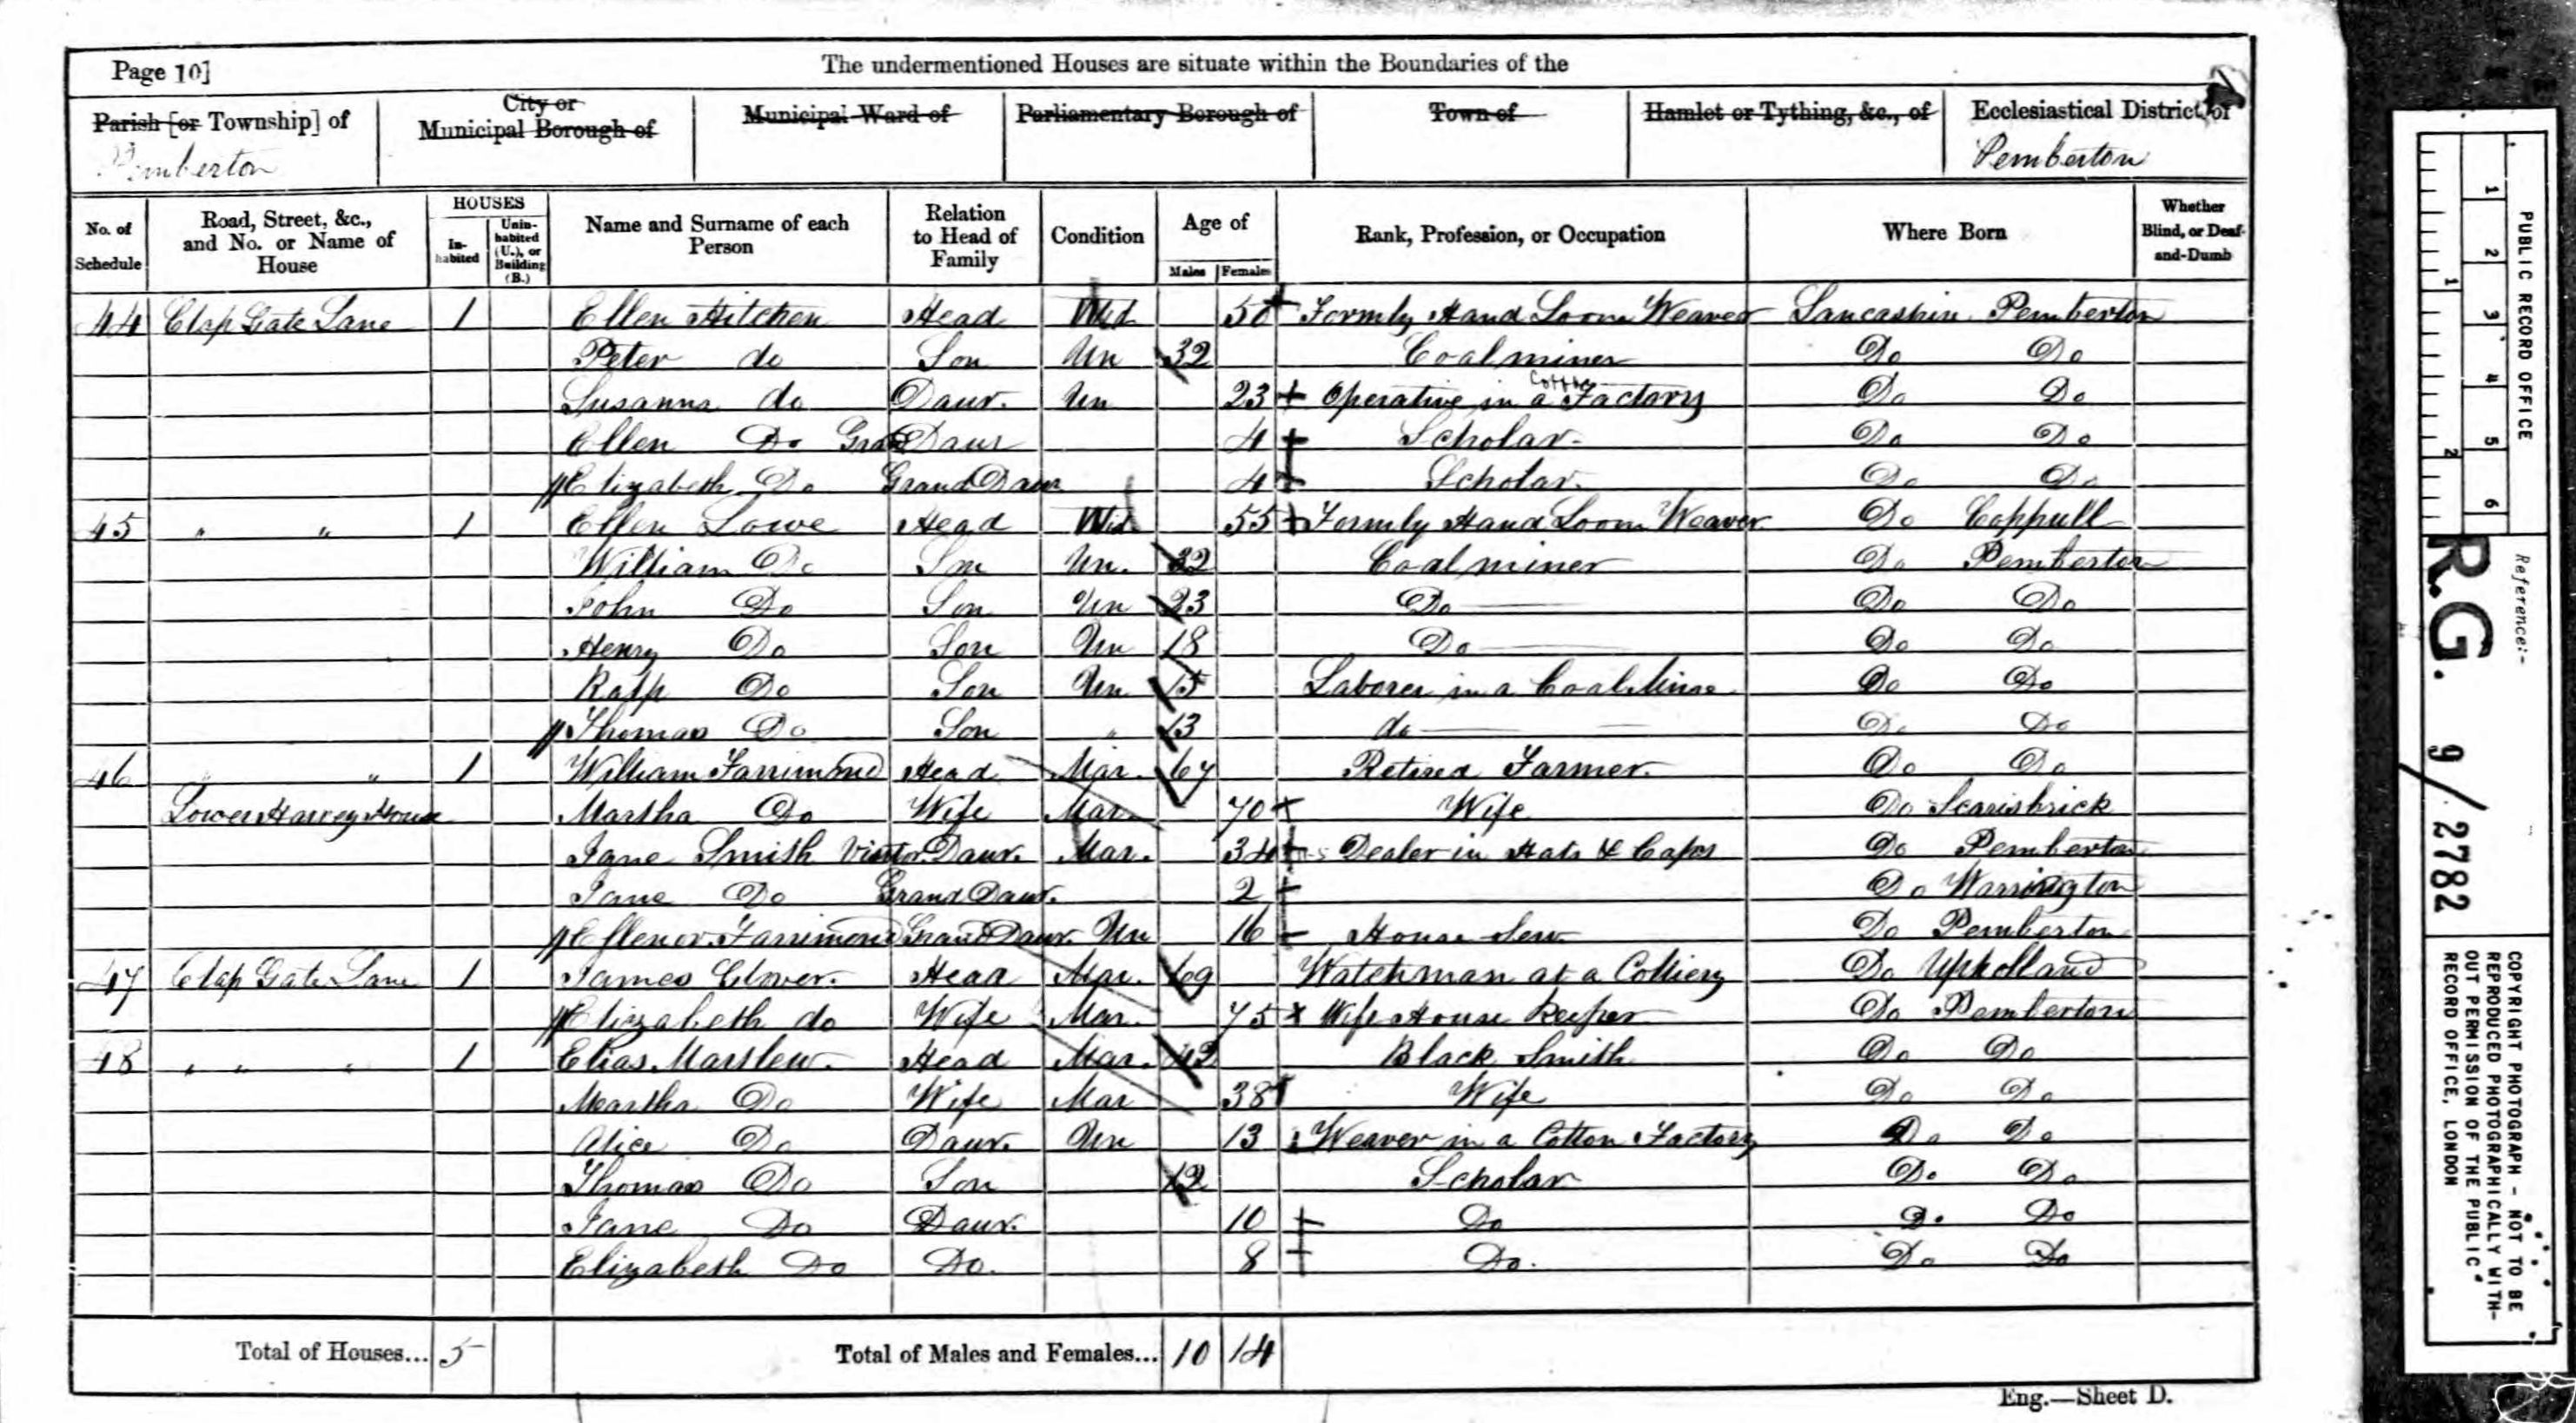 Page 10]
The undermentioned Houses are situate within the Boundaries of the
Parish [or Township] of
City or Municipal Borough of
Municipal Ward of
Parliamentary Borough of
Town of
Hamlet or Tything, &c., of
Ecclesiastical District of
Pemberton Pemberton
No. of Schedule
Road, Street, &c., and No. or Name of House
HOUSES
In-habited
Unin-habited (U.), or Building (B.)
Name and Surname of each Person
Relation to Head of Family
Condition
Age of
Males Females
Rank, Profession, or Occupation
Where Born
Whether Blind, or Deaf-and-Dumb
44 Clap Gate Lane 1 Ellen Hitchen Head Wid 50 Formly Hand Loom Weaver Lancashire Pemberton
Peter do Son Un 32 Coalminer Do Do
Susanna do Daur. Un 23 Operative in a Cotton Factory Do Do
Ellen Do Grand Daur 4 Scholar Do Do
Elizabeth Do Grand Daur 4 Scholar Do Do
45 " " 1 Ellen Lowe Head Wid 55 Formly Hand Loom Weaver Do Coppull
William Do Son Un. 32 Coalminer Do Pemberton
John Do Son Un 23 Do Do Do
Henry Do Son Un 18 Do Do Do
Ralp Do Son Un 15 Laborer in a Coal Mine Do Do
Thomas Do Son " 13 do Do Do
46 " " 1 William Farrimond Head Mar. 67 Retired Farmer. Do Do
Lower Harvey House Martha Do Wife Mar. 70 Wife Do Scarisbrick
Jane Smith Visitor Daur. Mar. 34 Dealer in Hats & Caps Do Pemberton
Jane Do Grand Daur. 2 Do Warrington
Ellenor Farrimond Grand Daur. Un 16 House Serv. Do Pemberton
47 Clap Gate Lane 1 James Glover. Head Mar. 69 Watchman at a Colliery Do Upholland
Elizabeth do Wife Mar. 75 Wife House Keeper Do Pemberton
48 " " " 1 Elias Marslew. Head Mar. 42 Black Smith Do Do
Martha Do Wife Mar 38 Wife Do Do
Alice Do Daur. Un 13 Weaver in a Cotton Factory Do Do
Thomas Do Son 12 Scholar Do Do
Jane Do Daur. 10 Do Do Do
Elizabeth Do Do. 8 Do. Do Do
Total of Houses... 5 Total of Males and Females... 10 14
Eng.—Sheet D.
PUBLIC RECORD OFFICE
1 2 3 4 5 6
1 2
Reference:-
R.G. 9/2782
COPYRIGHT PHOTOGRAPH - NOT TO BE
REPRODUCED PHOTOGRAPHICALLY WITH-
OUT PERMISSION OF THE PUBLIC
RECORD OFFICE, LONDON